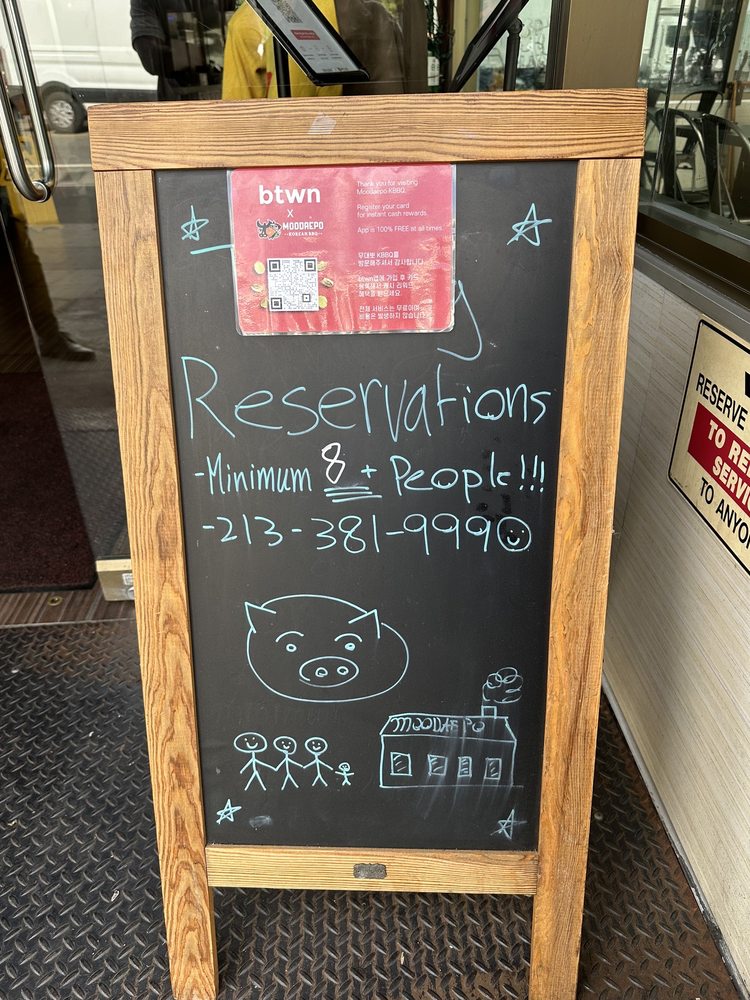 btwn
X
MOODAEPO
KOREAN BBQ
Thank you for visiting
Moodaepo KBBQ.
Register your card
for instant cash rewards.
App is 100% FREE at all times.
무대뽀 KBBQ를
방문해주셔서 감사합니다.
btwn앱에 가입 후 카드
등록해서 캐시 리워드
혜택을 받으세요.
전체 서비스는 무료이며
비용은 발생하지 않습니다.
Reservations
-Minimum 8+ People!!!
-213-381-999
MOODAEPO
RESERVE
TO
SERVIC
TO ANYO